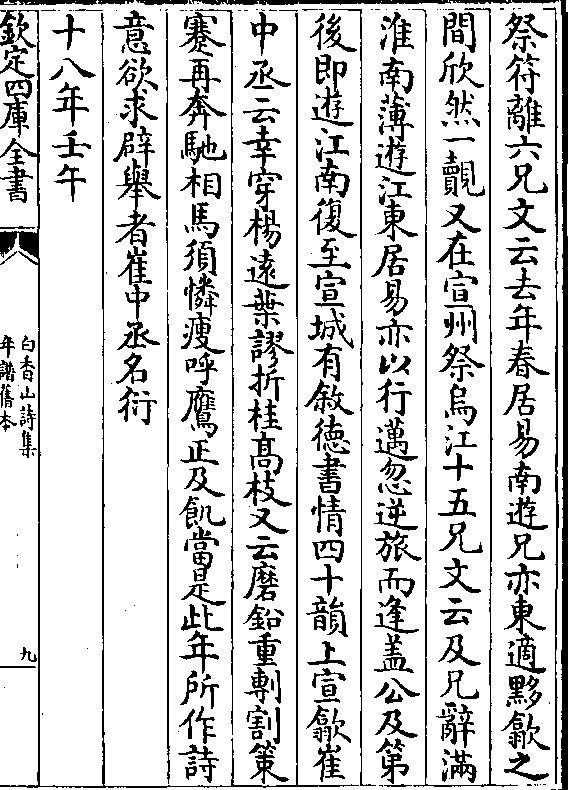 祭符離六兄文云去年春居易南遊兄亦東適黟歙之
間欣然一覿又在宣州祭烏江十五兄文云及兄辭滿
淮南薄遊江東居易亦以行邁忽逆旅而逢盖公及第
後即遊江南復至宣城有敘徳書情四十韻上宣歙崔
中丞云幸穿楊遠葉謬折桂髙枝又云磨鉛重剸割策
蹇再奔馳相馬須憐瘦呼鷹正及飢當是此年所作詩
意欲求辟舉者崔中丞名衍
十八年壬午
欽定四庫全書
白香山詩集
年譜舊本
九